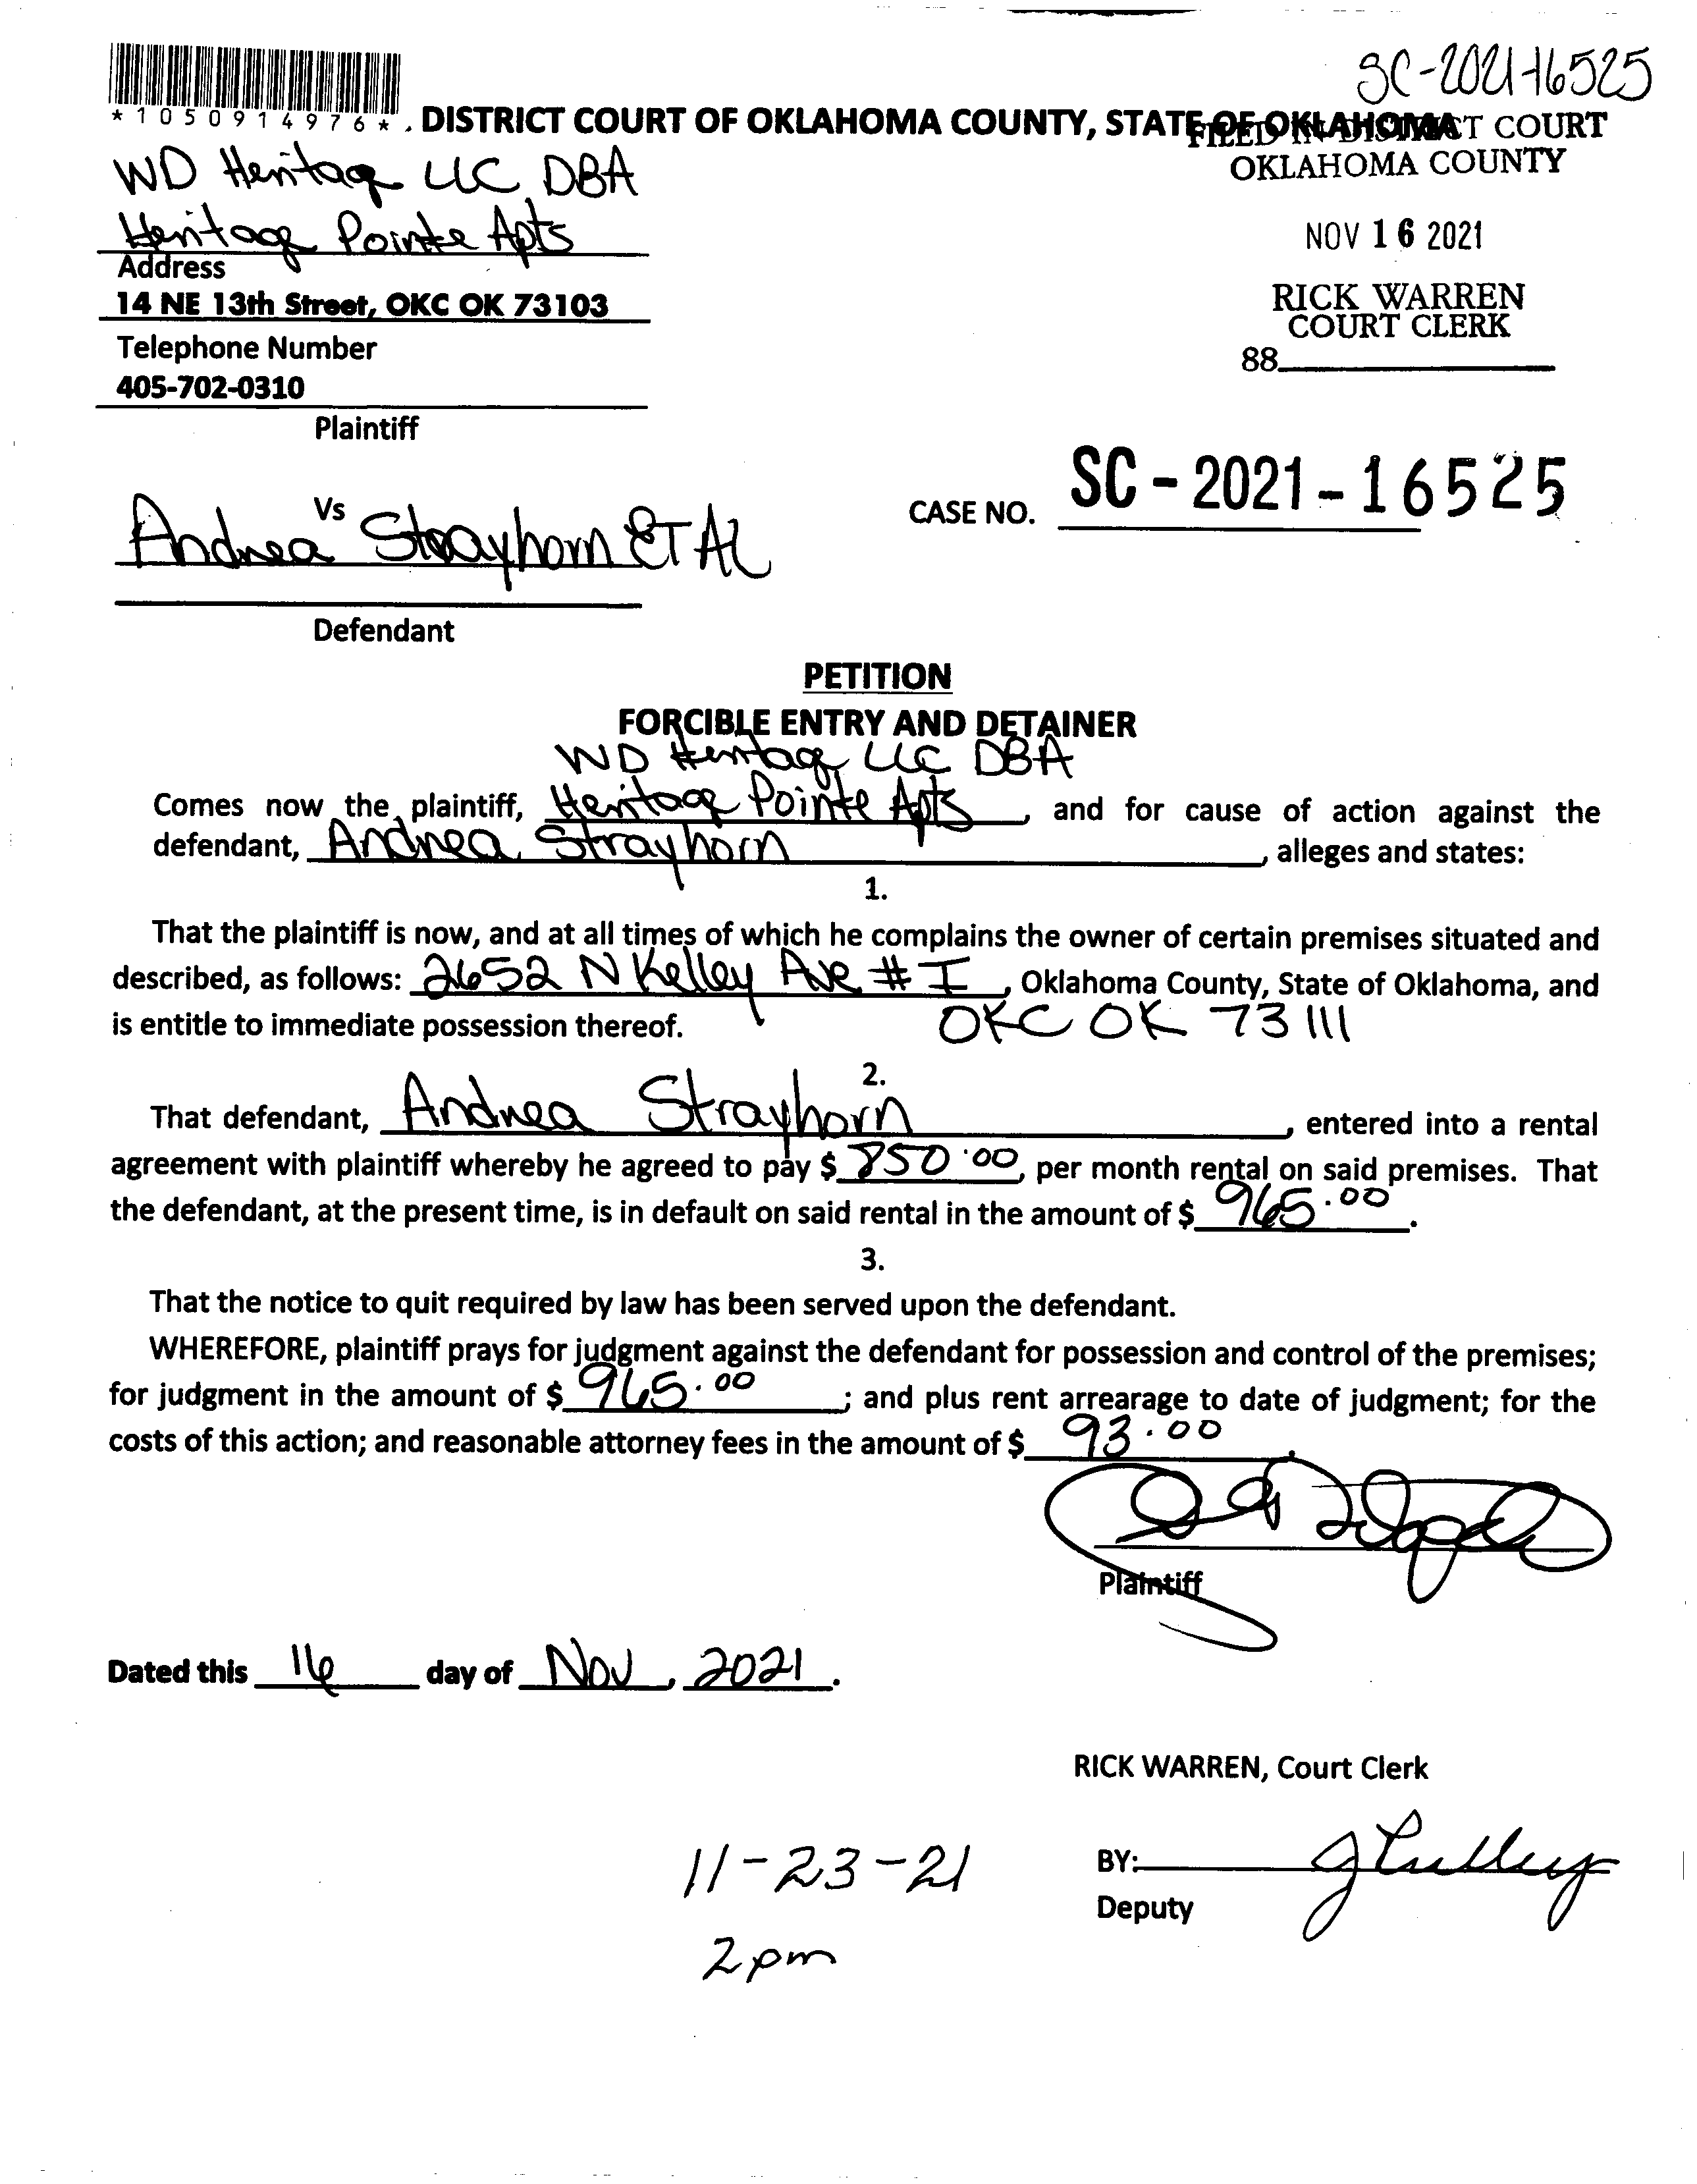 SC-2021-16525
*1050914976*
. DISTRICT COURT OF OKLAHOMA COUNTY, STATE OF OKLAHOMA
FILED IN DISTRICT COURT
OKLAHOMA COUNTY
WD Heritage LLC DBA
Heritage Pointe Apts
NOV 16 2021
Address
14 NE 13th Street, OKC OK 73103
RICK WARREN
COURT CLERK
Telephone Number
88
405-702-0310
Plaintiff
Vs
CASE NO. SC-2021-16525
Andrea Strayhorn ET AL
Defendant
PETITION
FORCIBLE ENTRY AND DETAINER
WD Heritage LLC DBA
Comes now the plaintiff, Heritage Pointe Apts, and for cause of action against the
defendant, Andrea Strayhorn, alleges and states:
1.
That the plaintiff is now, and at all times of which he complains the owner of certain premises situated and
described, as follows: 2652 N Kelley Ave # I, Oklahoma County, State of Oklahoma, and
is entitle to immediate possession thereof. OKC OK 73111
2.
That defendant, Andrea Strayhorn, entered into a rental
agreement with plaintiff whereby he agreed to pay $ 850.00, per month rental on said premises. That
the defendant, at the present time, is in default on said rental in the amount of $ 965.00.
3.
That the notice to quit required by law has been served upon the defendant.
WHEREFORE, plaintiff prays for judgment against the defendant for possession and control of the premises;
for judgment in the amount of $ 965.00; and plus rent arrearage to date of judgment; for the
costs of this action; and reasonable attorney fees in the amount of $ 93.00.
Plaintiff
Dated this 16 day of Nov, 2021.
RICK WARREN, Court Clerk
11-23-21
BY:
Deputy
2pm